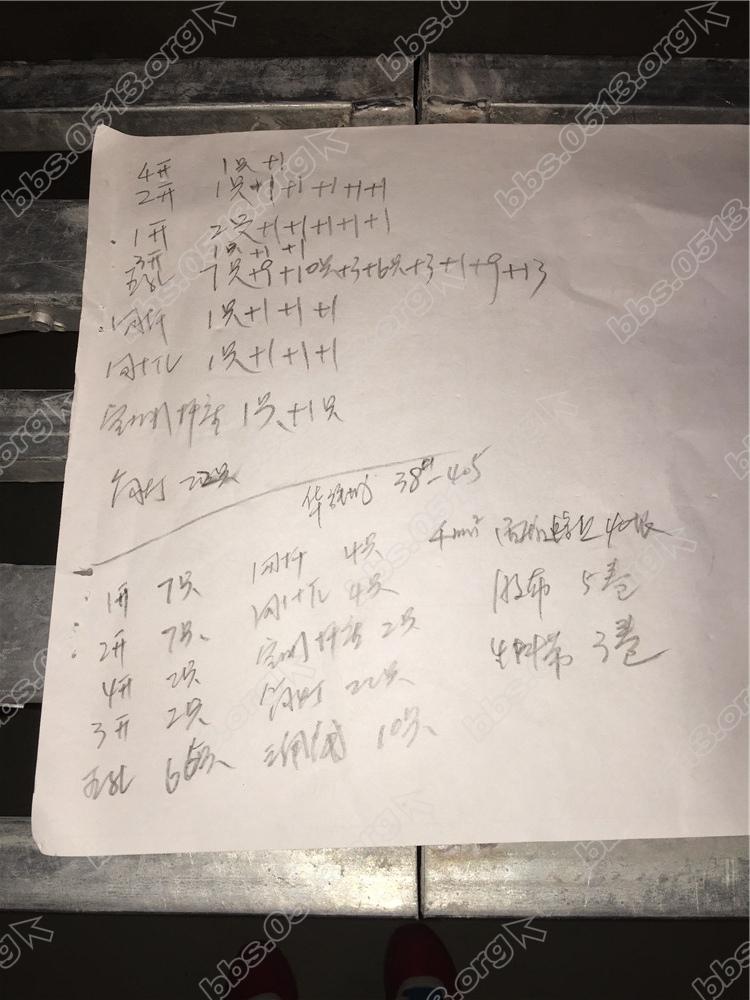 4开 1只+1
2开 1只+1+1+1+1+1
1开 2只+1+1+1+1+1
3开 1只+1+1
五孔 7只+9+10只+3+6只+3+1+9+13
1只+1+1+1
1只+1+1+1
空调 插座 1只+1只
筒灯 22只
38#-405
1开 7只 4只 4mm² 40根
2开 7只 4只 胶布 5卷
4开 2只 空调 插座 2只 生料带 3卷
3开 2只 筒灯 22只
五孔 66只 10只
bbs.0513.org